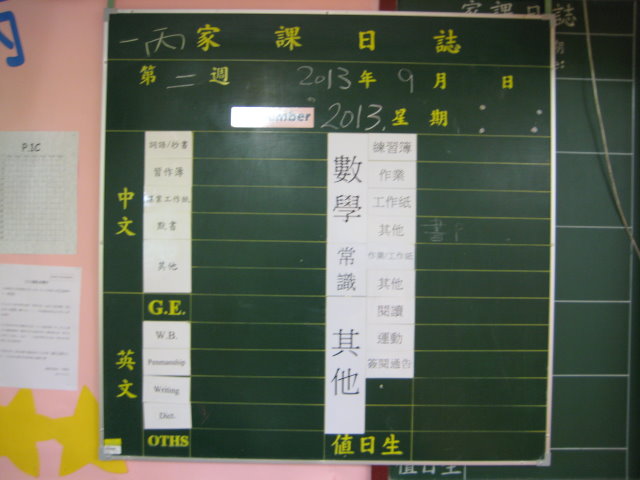 一丙家課日誌
第二週 2013年9月 日
mber 2013.星期:
中文
詞語/抄書
習作簿
作業工作紙
默書
其他
英文
G.E.
W.B.
Penmanship
Writing
Dict.
OTHS
數學
練習簿
作業
工作紙
其他 書
常識
作業/工作紙
其他
其他
閱讀
運動
簽閱通告
值日生
P.1C
家課日誌
期
值日生